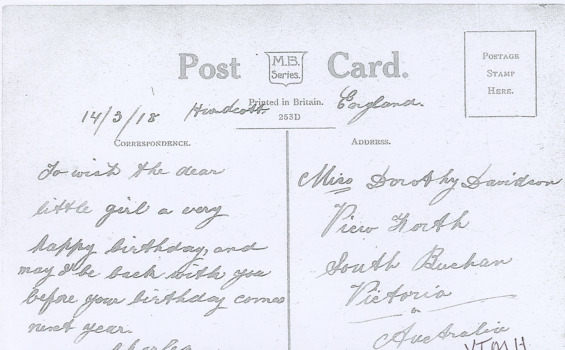 Post M.B. Series. Card.
POSTAGE STAMP HERE.
14/3/18 Hurdcott England.
Printed in Britain.
253D
CORRESPONDENCE.
ADDRESS.
To wish the dear
little girl a very
happy birthday, and
may I be back with you
before your birthday comes
next year.
Charles
Miss Dorothy Davidson
View North
South Buchan
Victoria
Australia